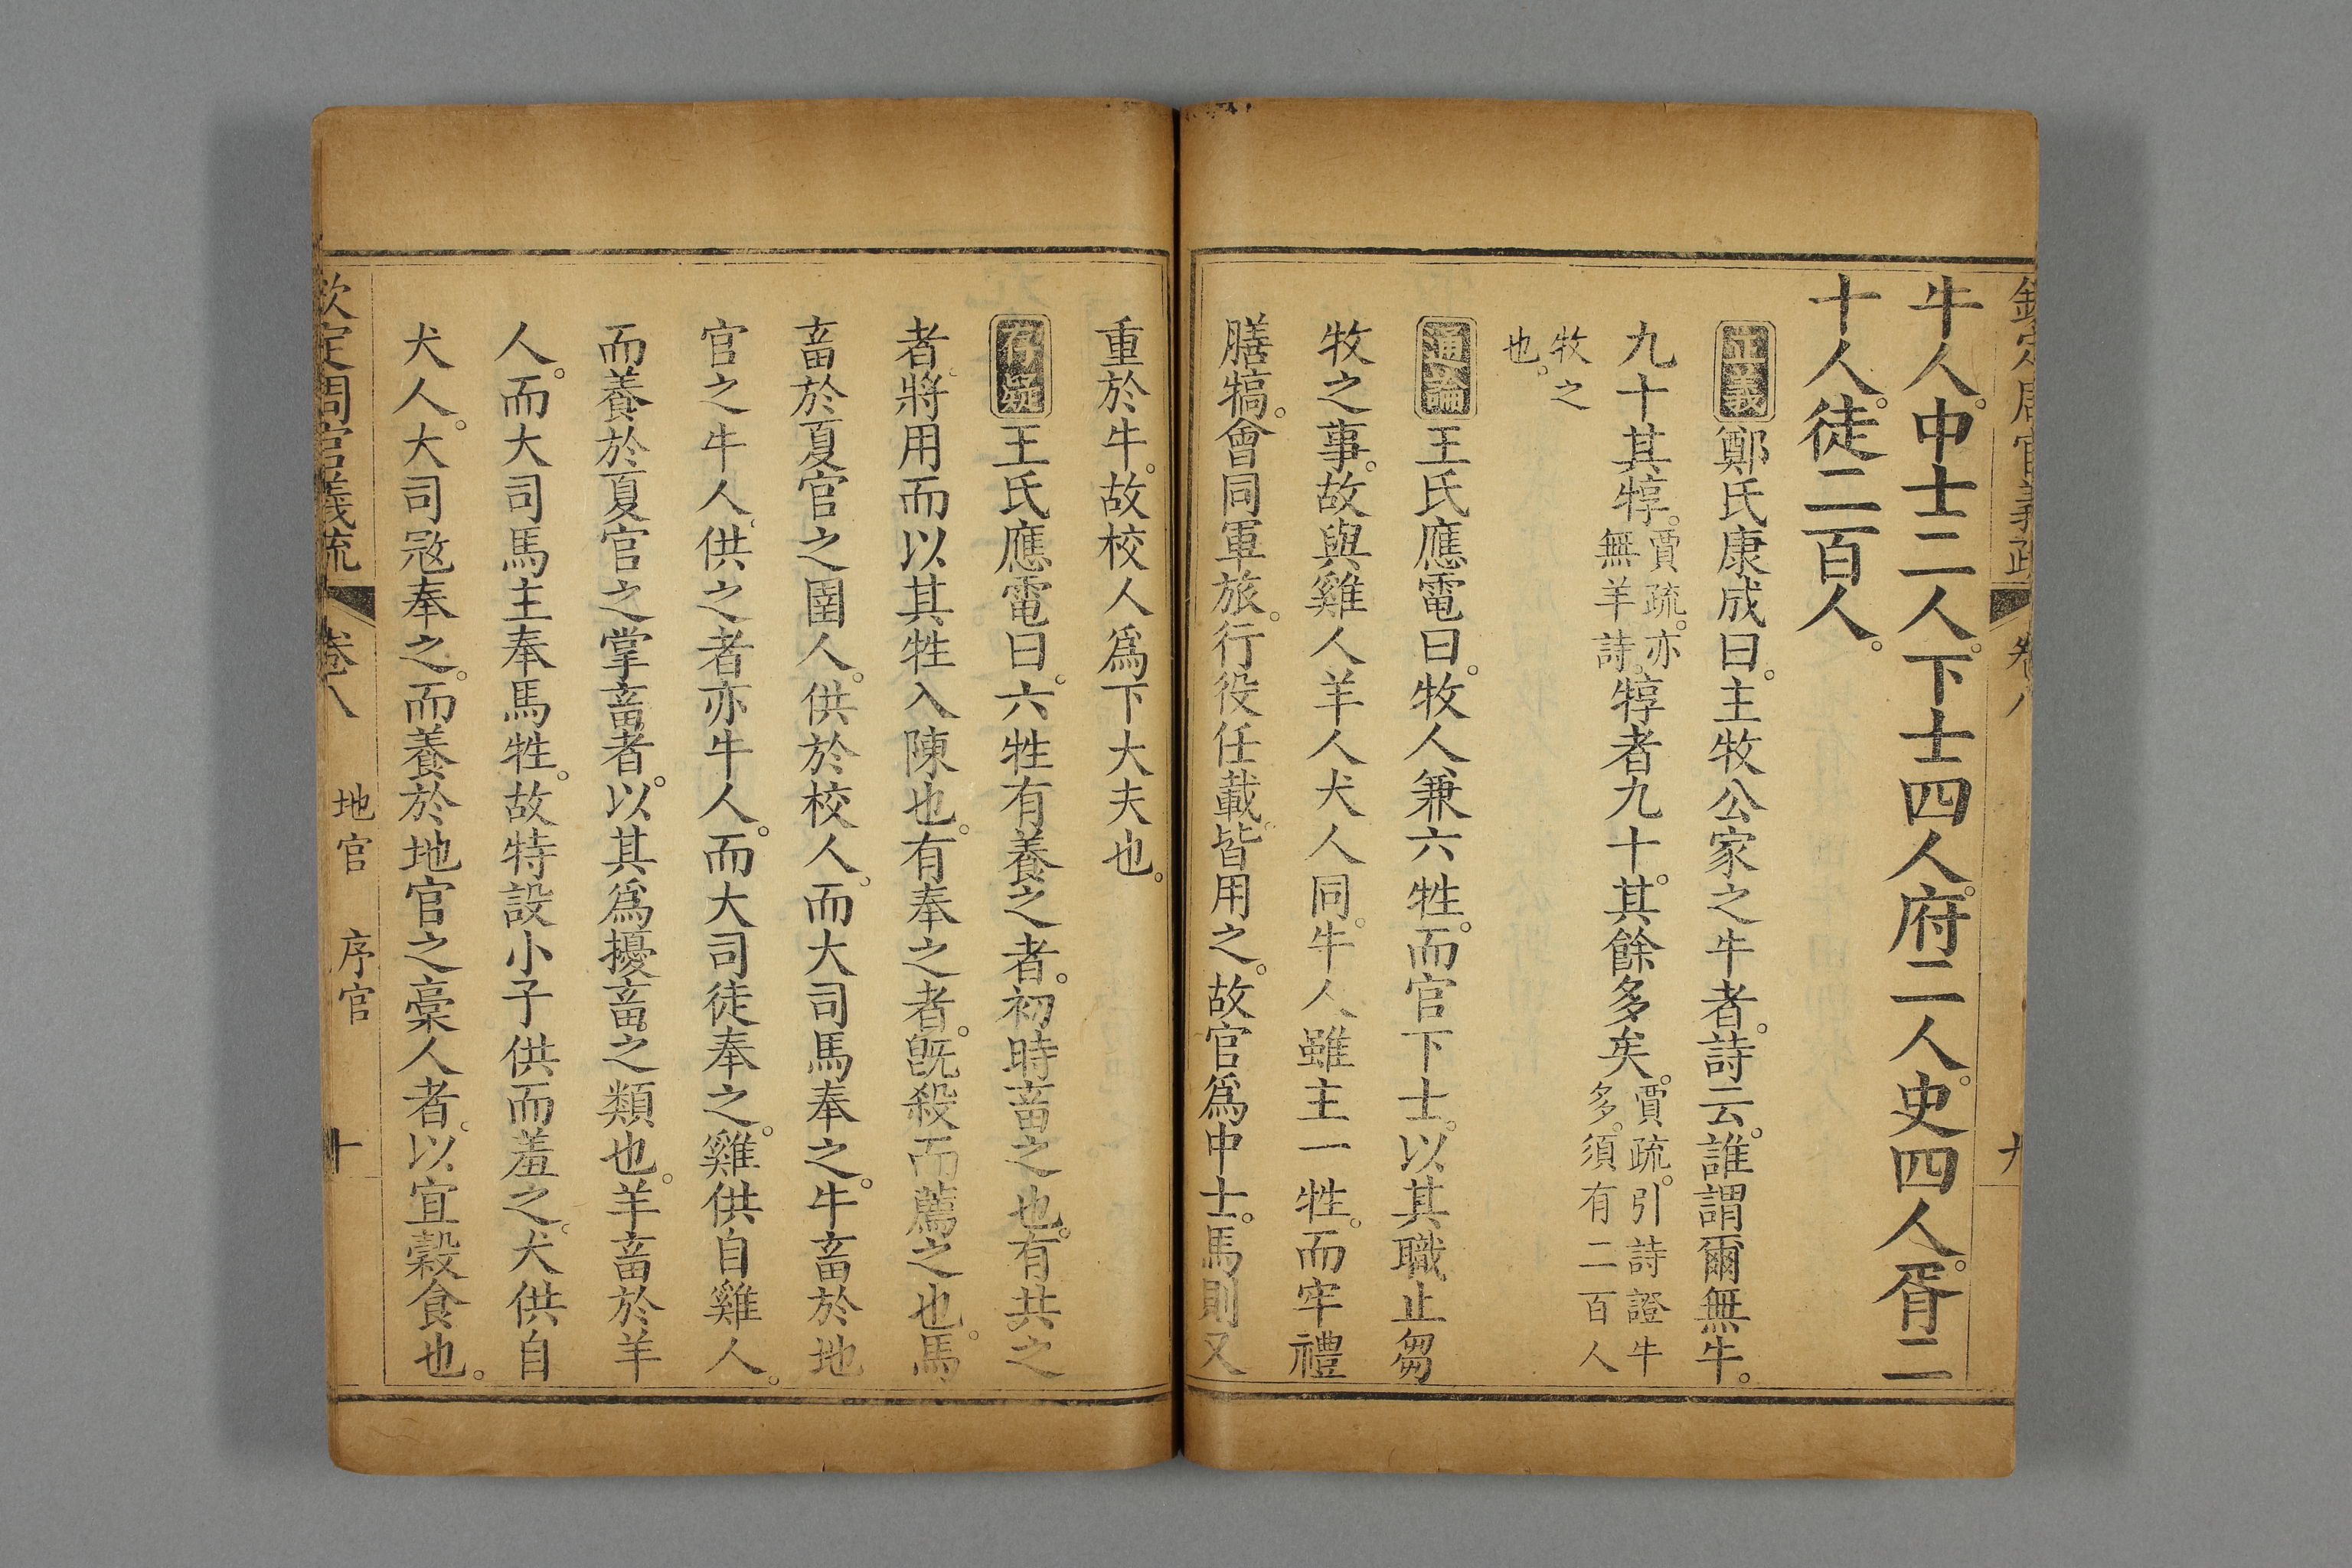 欽定周官義疏 卷八 九
牛人。中士二人。下士四人。府二人。史四人。胥二
十人。徒二百人。
正義鄭氏康成曰。主牧公家之牛者。詩云。誰謂爾無牛。
九十其犉。賈疏。亦無羊詩。犉者九十。其餘多矣。賈疏。引詩證牛多。須有二百人
牧之也。
通論王氏應電曰。牧人兼六牲。而官下士。以其職止芻
牧之事。故與雞人羊人犬人同。牛人雖主一牲。而牢禮
膳犒。會同軍旅。行役任載。皆用之。故官爲中士。馬則又
重於牛。故校人爲下大夫也。
存疑王氏應電曰。六牲有養之者。初時畜之也。有共之
者。將用而以其牲入陳也。有奉之者。旣殺而薦之也。馬
畜於夏官之圉人。供於校人。而大司馬奉之。牛畜於地
官之牛人。供之者亦牛人。而大司徒奉之。雞供自雞人。
而養於夏官之掌畜者。以其爲擾畜之類也。羊畜於羊
人。而大司馬主奉馬牲。故特設小子供而羞之。犬供自
犬人。大司寇奉之。而養於地官之稾人者。以宜穀食也。
欽定周官義疏 卷八 地官 序官 十